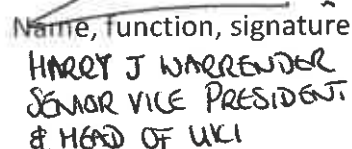 Name, function, signature
HARRY J WARRENDER
SENIOR VICE PRESIDENT
& HEAD OF UKI